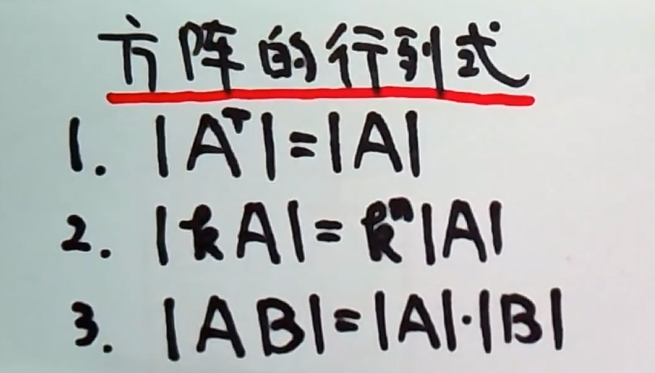 方阵的行列式
1. |Aᵀ|=|A|
2. |kA|=kⁿ|A|
3. |AB|=|A|·|B|